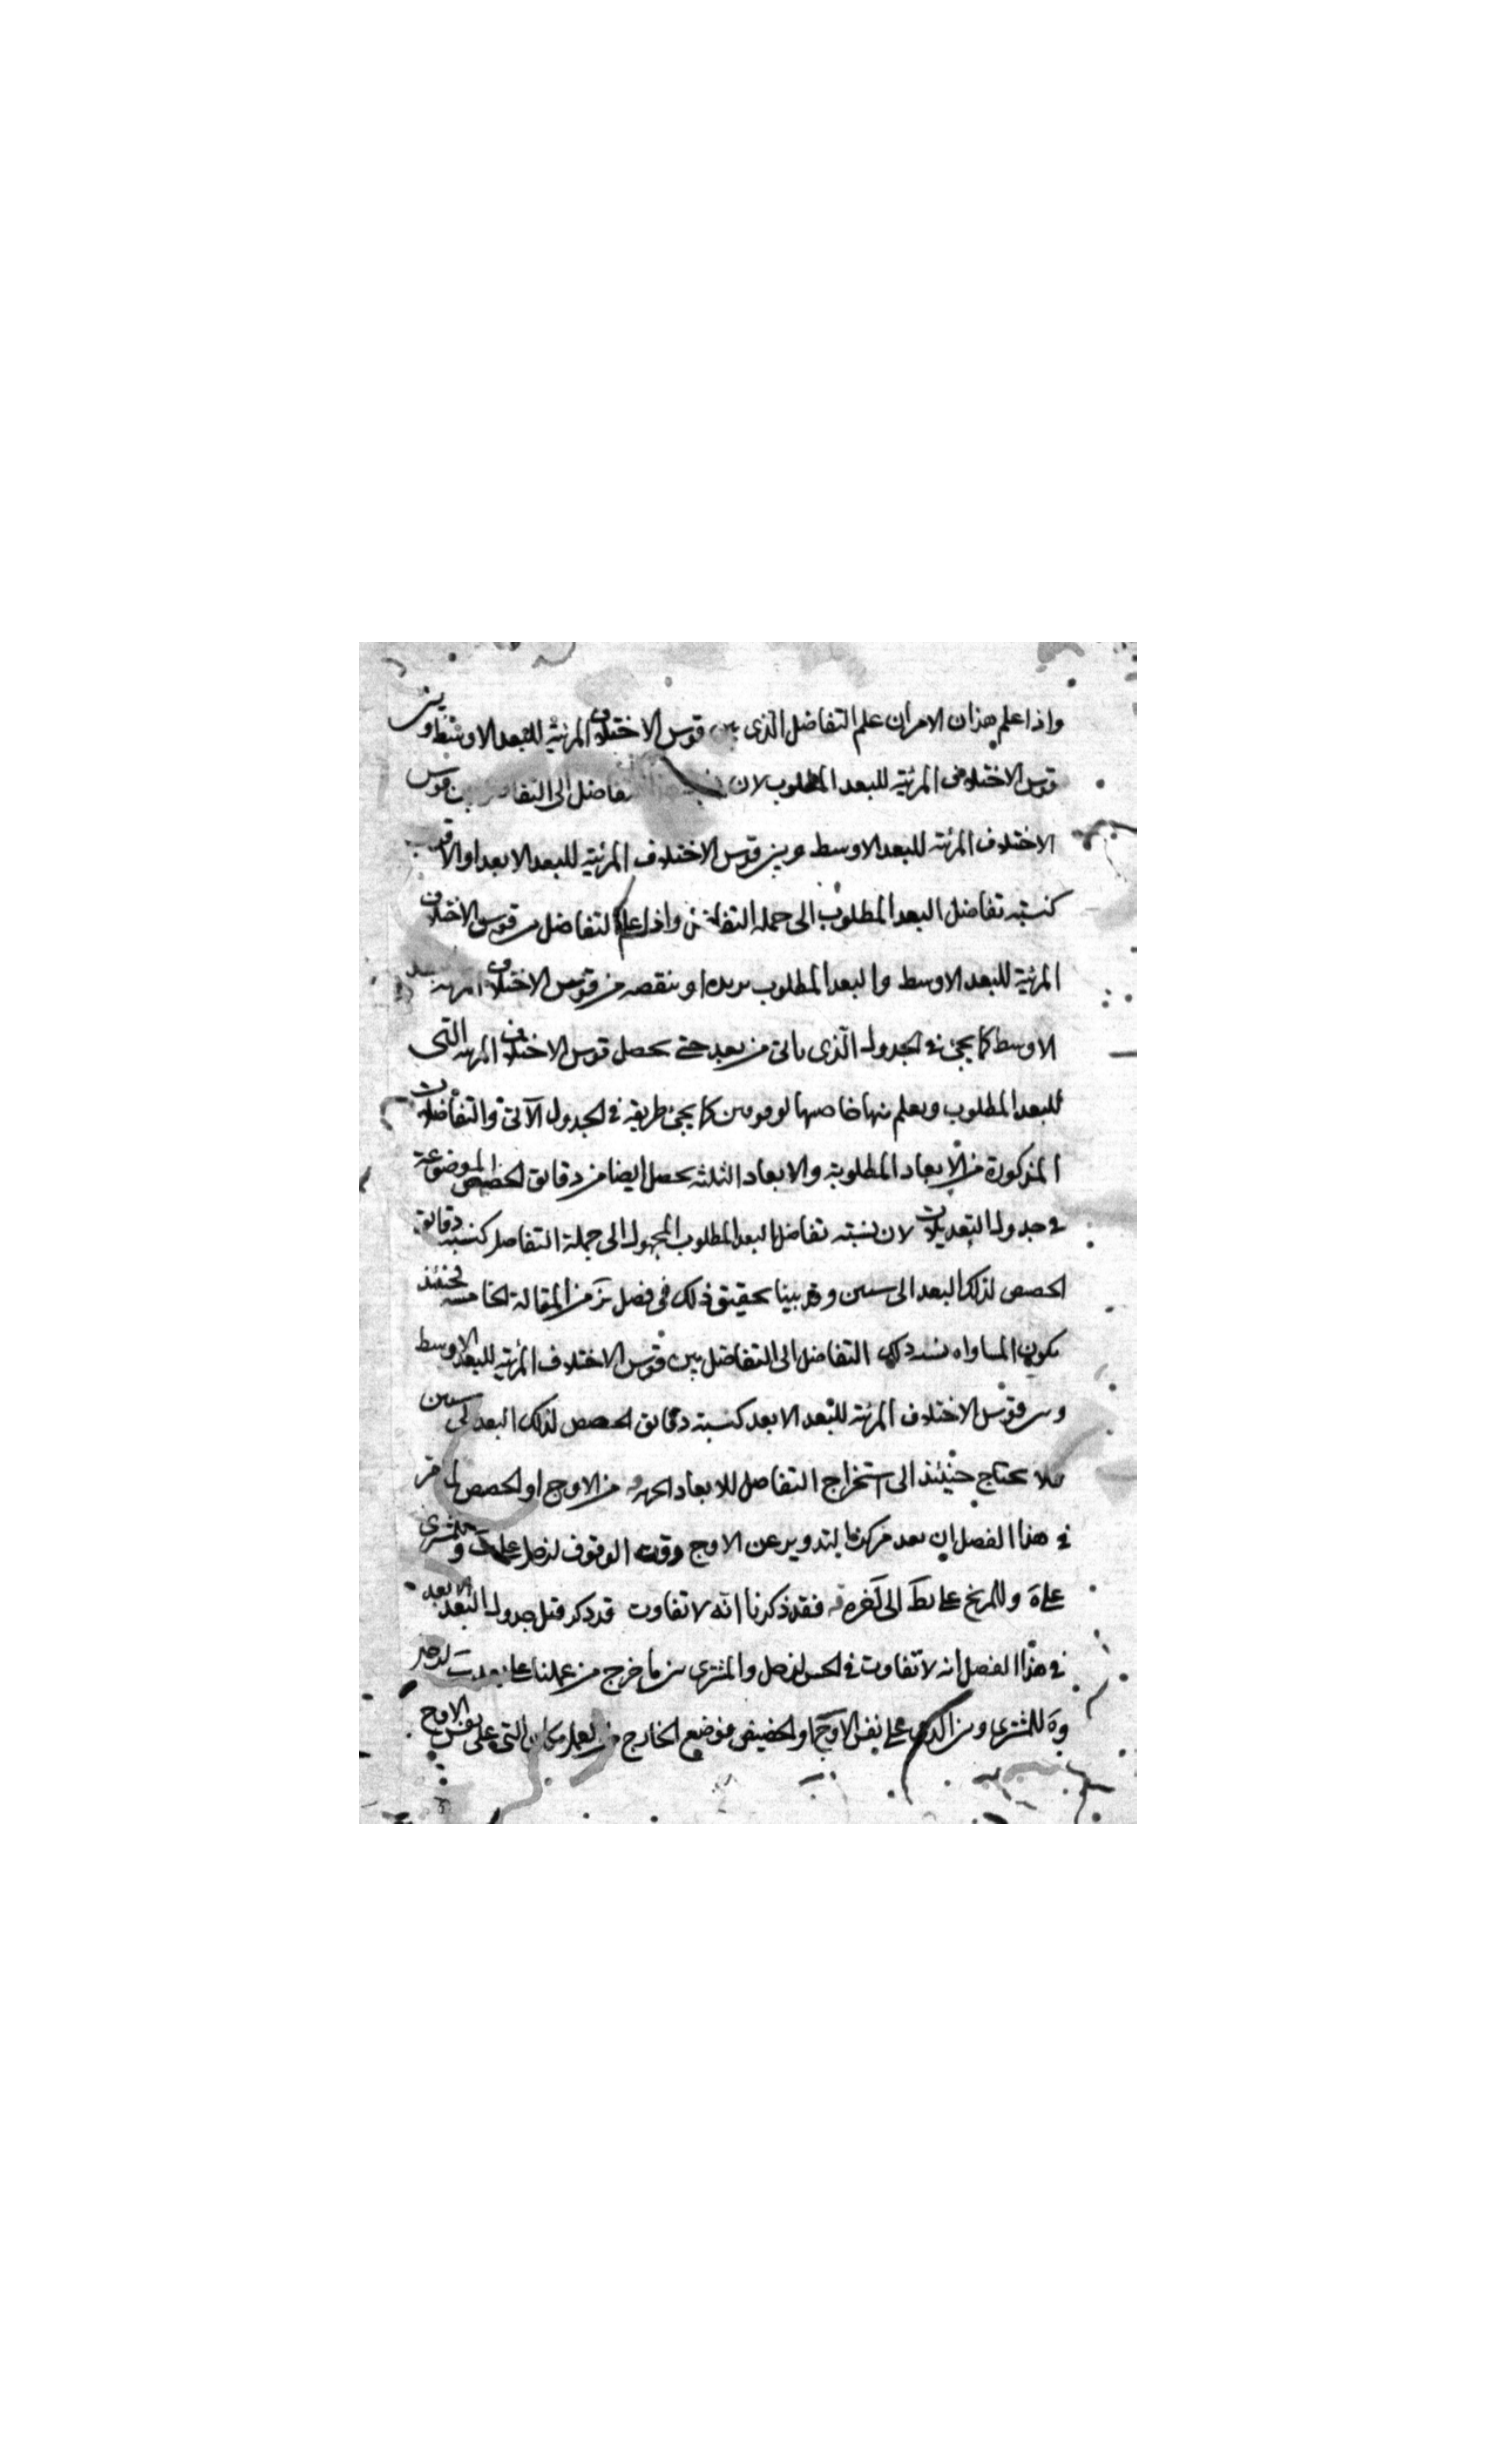 واذا علم هذان الامران علم التفاضل الذى بين قوس الاختلاف المرئية للبعد الاوسط وبين
قوس الاختلاف المرئية للبعد المطلوب لان التفاضل الى التفاضل بين قوس
الاختلاف المرئية للبعد الاوسط وبين قوس الاختلاف المرئية للبعد الابعد او الاقرب
كنسبة تفاضل البعد المطلوب الى جملة التفاضل واذا علم التفاضل بين قوس الاختلاف
المرئية للبعد الاوسط والبعد المطلوب نزيده او ننقصه من قوس الاختلاف المرئية للبعد
الاوسط كما يجئ فى الجدول الذى ياتى من بعد حتى يحصل قوس الاختلاف المرئية التى
للبعد المطلوب ويعلم منها كما يجئ طريقه فى الجدول الآتى والتفاضلات
المذكورة من الابعاد المطلوبة والابعاد الثلثة يحصل ايضا من دقايق الحصص الموضوعة
فى جدول التعديلات لان نسبة تفاضل البعد المطلوب المجهول الى جملة التفاضل كنسبة دقايق
الحصص لذلك البعد الى ستين وقد بينا تحقيق ذلك فى فصل من المقالة الخامسة فحينئذ
يكون المساواة نسبة ذلك التفاضل الى التفاضل بين قوس الاختلاف المرئية للبعد الاوسط
وبين قوس الاختلاف المرئية للبعد الابعد كنسبة دقايق الحصص لذلك البعد الى ستين
فلا يحتاج حينئذ الى استخراج التفاضل للابعاد من الاوج او الحضيض لما مر
فى هذا الفصل ان بعد مركز التدوير عن الاوج وقت الوقوف لزحل على وللمشترى
على ة وللمريخ على الى فقد ذكرنا انه لا تفاوت قد ذكر قبل جدول البعد الابعد
فى هذا الفصل انه لا تفاوت فى الحس لزحل والمشترى بين ما خرج من عملنا على بعد لزحل
وة للمشترى وبين الذى على نفس الاوج او الحضيض فوضع الخارج التى على نفس الاوج